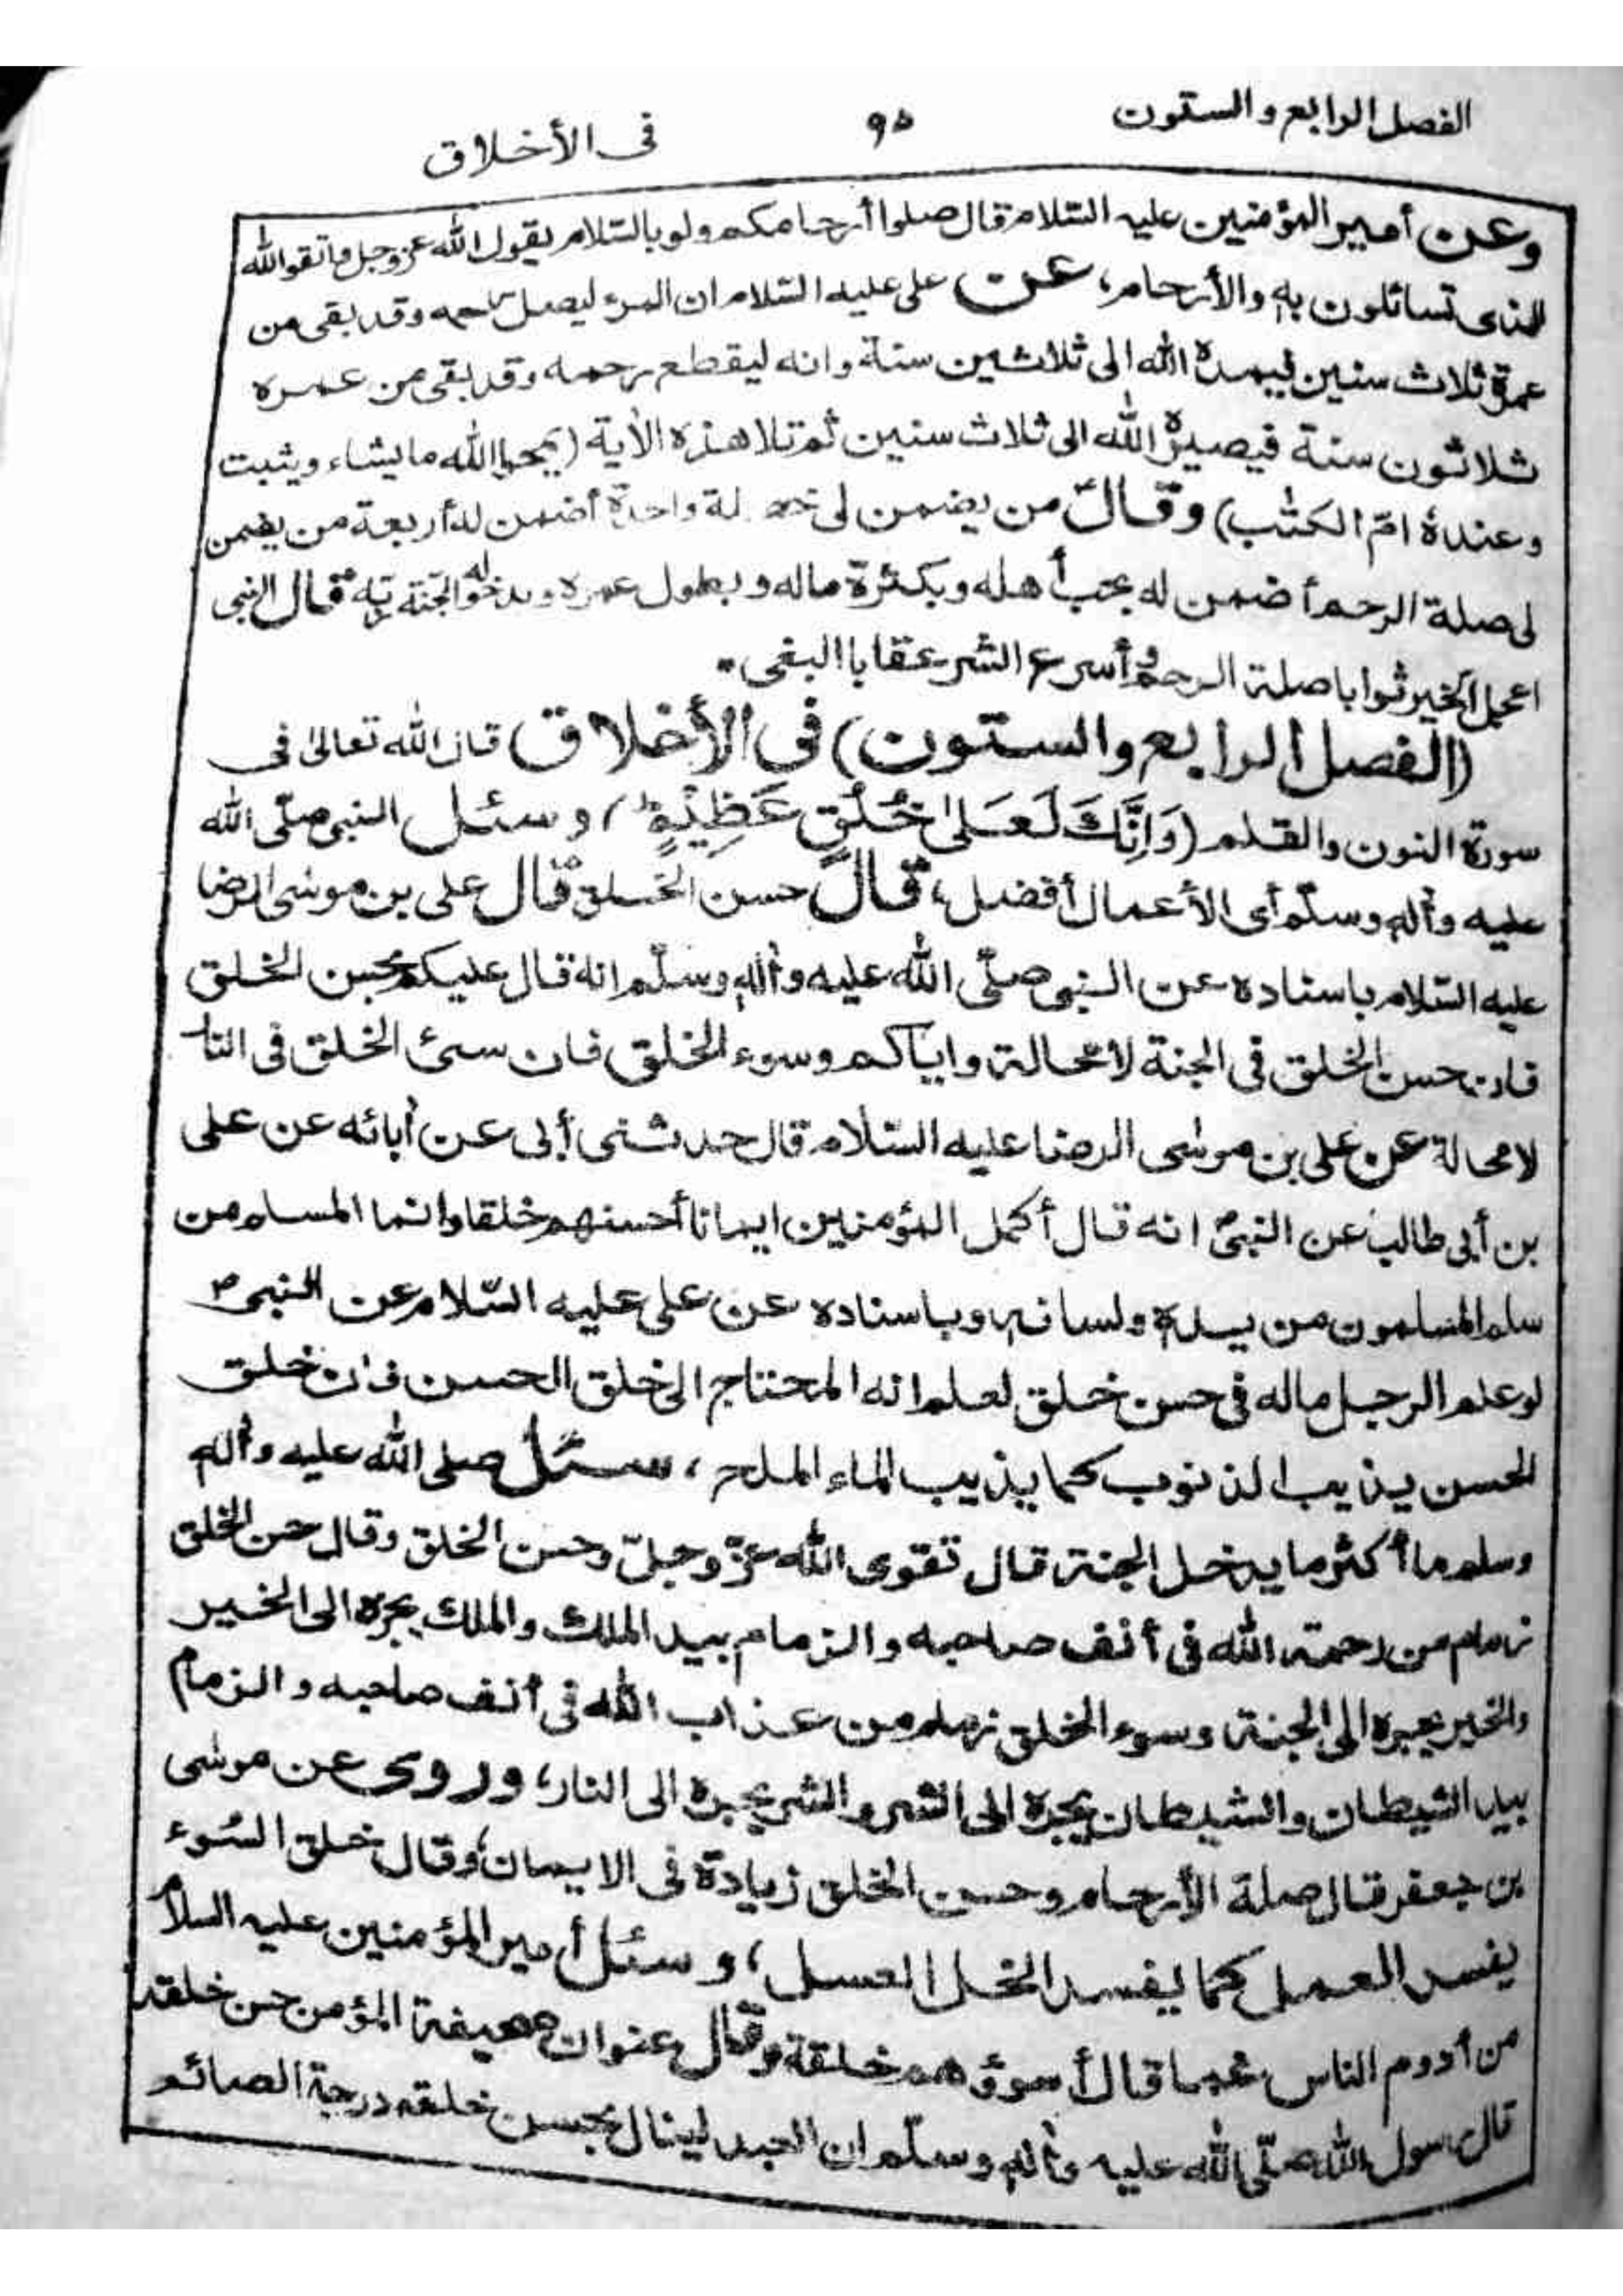 الفصل الرابع والستون ٩٥ فى الأخلاق
وعن أمير المؤمنين عليه السّلام قال صلوا أرحامكم ولو بالسّلام يقول الله عزوجل واتقوا الله
الذى تسائلون به والأرحام، عن على عليه السّلام ان المرء ليصل رحمه وقد بقى من
عمرة ثلاث سنين فيمدة الله الى ثلاثين سنة وانه ليقطع رحمه وقد بقى من عمره
ثلاثون سنة فيصيرة الله الى ثلاث سنين ثم تلا هذه الأية (يمحوا الله ما يشاء ويثبت
وعندهٗ امّ الكتٰب) وقال من يضمن لى واحدة أضمن له أربعة من يضمن
لى صلة الرحم أضمن له بحب أهله وبكثرة ماله وبطول عمره وبدخوله الجنّة ربّه قال النبى
اعجل الخير ثوابا صلة الرحم وأسرع الشر عقابا البغى ۔
(الفصل الرابع والستون) فى الأخلاق قال الله تعالىٰ فى
سورة النون والقلم (وَاِنَّكَ لَعَلىٰ خُلُقٍ عَظِيْمٍ) وسئل النبى صلّى الله
عليه وأله وسلّم أى الأعمال أفضل، قال حسن الخلق قال على بن موسٰى الرضا
عليه السّلام باسناده عن النبى صلّى الله عليه وأله وسلّم انه قال عليكم بحسن الخلق
فان حسن الخلق فى الجنة لا محالة واياكم وسوء الخلق فان سئ الخلق فى النا
لا محالة عن على بن موسٰى الرضا عليه السّلام قال حدثنى أبى عن أبائه عن على
بن أبى طالب عن النبىؐ انه قال أكمل المؤمنين ايمانا أحسنهم خلقا وانما المسلم من
سلم المسلمون من يدة ولسانه وباسناده عن على عليه السّلام عن النبىؐ
لو علم الرجل ماله فى حسن خلق لعلم انه المحتاج الى خلق الحسن فان خلق
الحسن يذيب الذنوب كما يذيب الماء الملح، سئل صلى الله عليه وأله
وسلم ما أكثر ما يدخل الجنة قال تقوى الله عزّ وجلّ وحسن الخلق وقال حسن الخلق
زمام من رحمة الله فى أنف صاحبه والزمام بيد الملك والملك يجره الى الخير
والخير يجره الى الجنة وسوء الخلق زمام من عذاب الله فى أنف صاحبه والزمام
بيد الشيطان والشيطان يجره الى الشر والشر يجره الى النار، وروى عن موسٰى
بن جعفر قال صلة الأرحام وحسن الخلق زيادة فى الايمان، وقال خلق السّوء
يفسد العمل كما يفسد الخل العسل، وسئل أمير المؤمنين عليه السلام
من أدوم الناس غما قال أسوؤهم خلقة وقال عنوان صحيفة المؤمن حسن خلقه
قال رسول الله صلّى الله عليه وأله وسلّم ان العبد لينال بحسن خلقه درجة الصائم